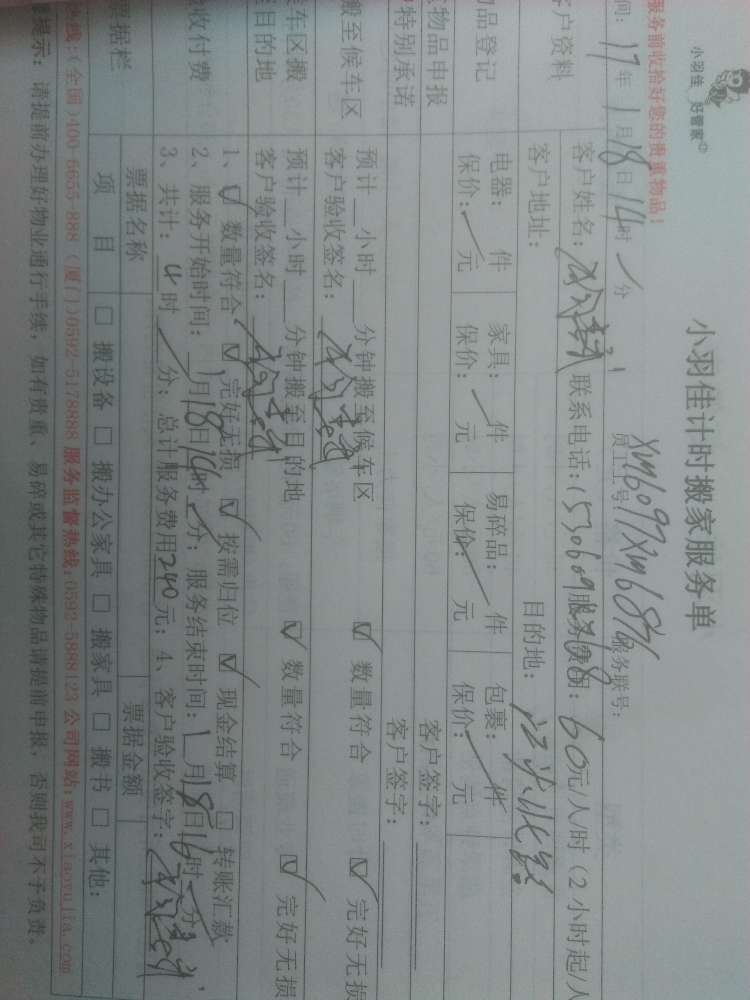 小羽佳 好管家
小羽佳计时搬家服务单
服务前收拾好您的贵重物品!
间: 17年1月18日14时 分 员工工号: xm6097 xm6876 服务联号:
客户资料 客户姓名: 联系电话: 服务费用: 60元/人/时(2小时起/人
客户地址: 目的地:
物品登记 电器: 件 家具: 件 易碎品: 件 包裹: 件
保价: 元 保价: 元 保价: 元 保价: 元
物品申报 客户签字:
特别承诺 客户签字:
搬至候车区 预计 小时 分钟搬至候车区 数量符合 完好无损
客户验收签名:
车区搬 预计 小时 分钟搬至目的地 数量符合 完好无损
目的地 客户验收签名:
收付费 1、 数量符合 完好无损 按需归位 现金结算 转账汇款
2、服务开始时间: 1月18日14时 分; 服务结束时间: 1月18日16时 分
3、共计: 4时 分; 总计服务费用240元; 4、客户验收签字:
票据栏 票据名称 票据金额
项 目 搬设备 搬办公家具 搬家具 搬书 其他:
热线:(全国)400-6655-888 (厦门)0592-5178888 服务监督热线:0592-5888123 公司网站:www.xiaoyujia.com
提示: 请提前办理好物业通行手续, 如有贵重、易碎或其它特殊物品请提前申报, 否则我司不予负责。